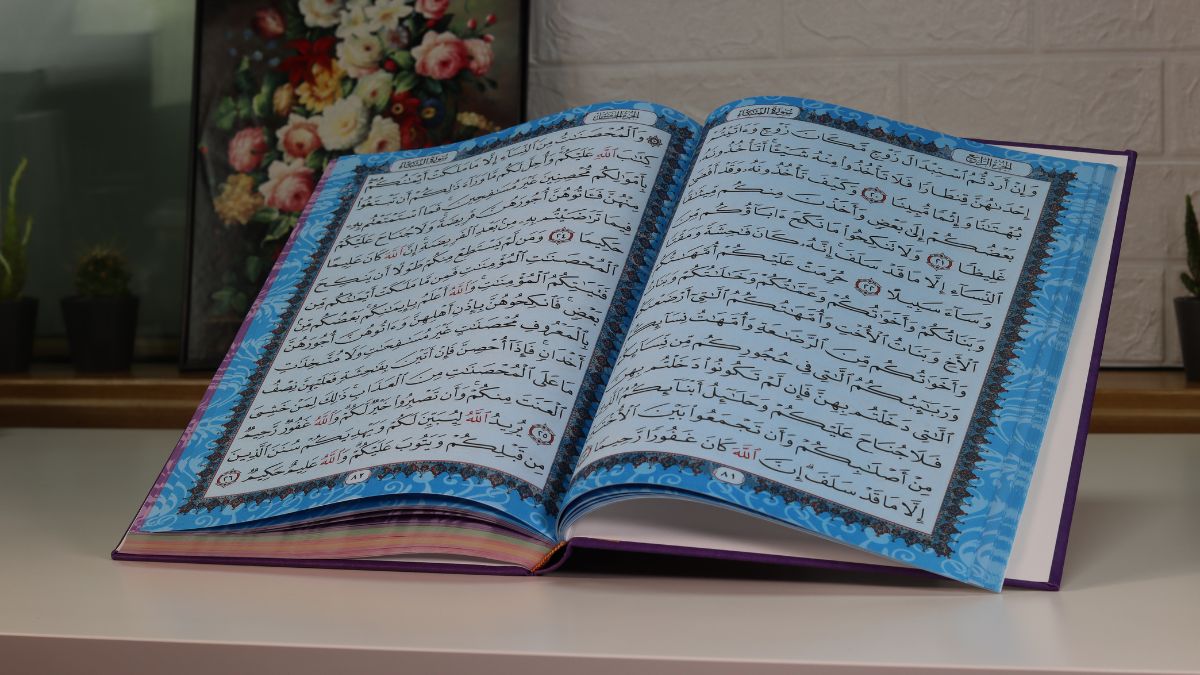 الجزء الرابع
سورة النساء
وَإِنْ أَرَدتُّمُ ٱسْتِبْدَالَ زَوْجٍ مَّكَانَ زَوْجٍ وَءَاتَيْتُمْ
إِحْدَىٰهُنَّ قِنطَارًا فَلَا تَأْخُذُوا۟ مِنْهُ شَيْـًٔا أَتَأْخُذُونَهُۥ
بُهْتَٰنًا وَإِثْمًا مُّبِينًا ٢٠ وَكَيْفَ تَأْخُذُونَهُۥ وَقَدْ أَفْضَىٰ
بَعْضُكُمْ إِلَىٰ بَعْضٍ وَأَخَذْنَ مِنكُم مِّيثَٰقًا
غَلِيظًا ٢١ وَلَا تَنكِحُوا۟ مَا نَكَحَ ءَابَآؤُكُم مِّنَ
ٱلنِّسَآءِ إِلَّا مَا قَدْ سَلَفَ إِنَّهُۥ كَانَ فَٰحِشَةً وَمَقْتًا
وَسَآءَ سَبِيلًا ٢٢ حُرِّمَتْ عَلَيْكُمْ أُمَّهَٰتُكُمْ
وَبَنَاتُكُمْ وَأَخَوَٰتُكُمْ وَعَمَّٰتُكُمْ وَخَٰلَٰتُكُمْ وَبَنَاتُ
ٱلْأَخِ وَبَنَاتُ ٱلْأُخْتِ وَأُمَّهَٰتُكُمُ ٱلَّٰتِىٓ أَرْضَعْنَكُمْ
وَأَخَوَٰتُكُم مِّنَ ٱلرَّضَٰعَةِ وَأُمَّهَٰتُ نِسَآئِكُمْ
وَرَبَٰٓئِبُكُمُ ٱلَّٰتِى فِى حُجُورِكُم مِّن نِّسَآئِكُمُ
ٱلَّٰتِى دَخَلْتُم بِهِنَّ فَإِن لَّمْ تَكُونُوا۟ دَخَلْتُم بِهِنَّ
فَلَا جُنَاحَ عَلَيْكُمْ وَحَلَٰٓئِلُ أَبْنَآئِكُمُ
مِنْ أَصْلَٰبِكُمْ وَأَن تَجْمَعُوا۟ بَيْنَ
إِلَّا مَا قَدْ سَلَفَ إِنَّ ٱللَّهَ كَانَ غَفُورًا رَّحِيمًا
٨١
الجزء الخامس
سورة النساء
وَٱلْمُحْصَنَٰتُ مِنَ ٱلنِّسَآءِ إِلَّا مَا مَلَكَتْ أَيْمَٰنُكُمْ
كِتَٰبَ ٱللَّهِ عَلَيْكُمْ وَأُحِلَّ لَكُم مَّا وَرَآءَ ذَٰلِكُمْ أَن تَبْتَغُوا۟
بِأَمْوَٰلِكُم مُّحْصِنِينَ غَيْرَ مُسَٰفِحِينَ فَمَا ٱسْتَمْتَعْتُم بِهِۦ
مِنْهُنَّ فَـَٔاتُوهُنَّ أُجُورَهُنَّ فَرِيضَةً وَلَا جُنَاحَ عَلَيْكُمْ
فِيمَا تَرَٰضَيْتُم بِهِۦ مِنۢ بَعْدِ ٱلْفَرِيضَةِ إِنَّ ٱللَّهَ كَانَ عَلِيمًا
حَكِيمًا ٢٤ وَمَن لَّمْ يَسْتَطِعْ مِنكُمْ طَوْلًا أَن يَنكِحَ
ٱلْمُحْصَنَٰتِ ٱلْمُؤْمِنَٰتِ فَمِن مَّا مَلَكَتْ أَيْمَٰنُكُم مِّن
فَتَيَٰتِكُمُ ٱلْمُؤْمِنَٰتِ وَٱللَّهُ أَعْلَمُ بِإِيمَٰنِكُم بَعْضُكُم مِّنۢ
بَعْضٍ فَٱنكِحُوهُنَّ بِإِذْنِ أَهْلِهِنَّ وَءَاتُوهُنَّ أُجُورَهُنَّ
بِٱلْمَعْرُوفِ مُحْصَنَٰتٍ غَيْرَ مُسَٰفِحَٰتٍ وَلَا مُتَّخِذَٰتِ
أَخْدَانٍ فَإِذَآ أُحْصِنَّ فَإِنْ أَتَيْنَ بِفَٰحِشَةٍ فَعَلَيْهِنَّ نِصْفُ
مَا عَلَى ٱلْمُحْصَنَٰتِ مِنَ ٱلْعَذَابِ ذَٰلِكَ لِمَنْ خَشِىَ
ٱلْعَنَتَ مِنكُمْ وَأَن تَصْبِرُوا۟ خَيْرٌ لَّكُمْ وَٱللَّهُ غَفُورٌ رَّحِيمٌ
٢٥ يُرِيدُ ٱللَّهُ لِيُبَيِّنَ لَكُمْ وَيَهْدِيَكُمْ سُنَنَ ٱلَّذِينَ
مِن قَبْلِكُمْ وَيَتُوبَ عَلَيْكُمْ وَٱللَّهُ عَلِيمٌ حَكِيمٌ ٢٦
٨٢